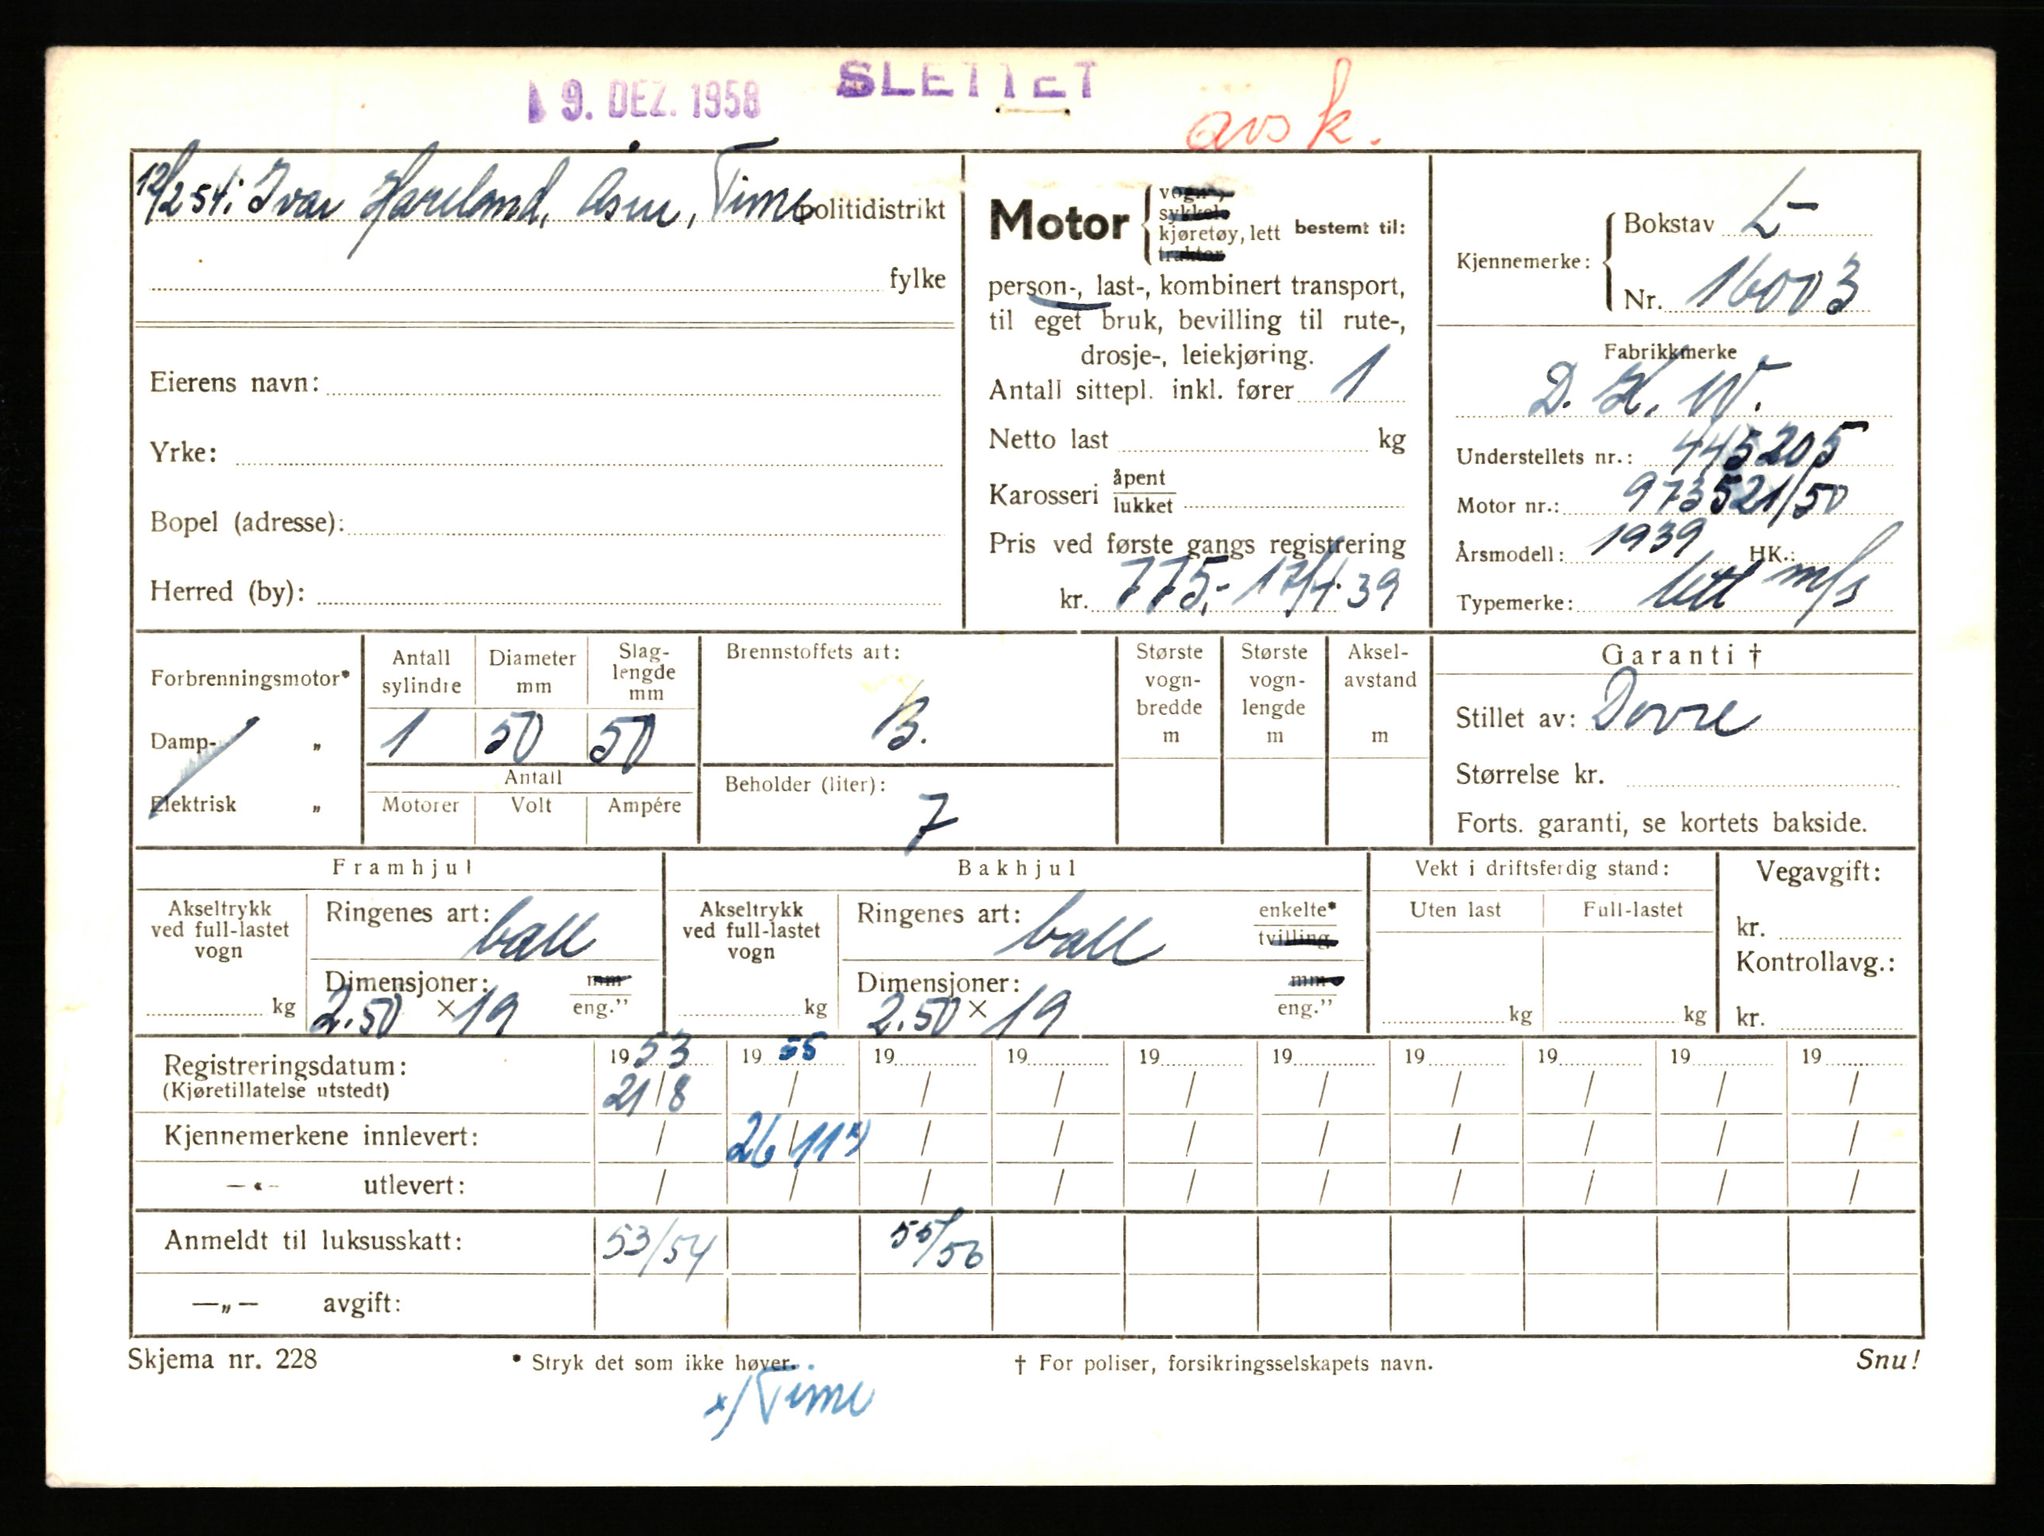 9. DEZ. 1958 SLETTET
avsk.
12/2 54: Ivar Hareland, Åsen, Time politidistrikt
fylke
Eierens navn:
Yrke:
Bopel (adresse):
Herred (by):
Motor vogn, bestemt til:
sykkel
kjøretøy, lett
traktor
person-, last-, kombinert transport,
til eget bruk, bevilling til rute-,
drosje-, leiekjøring.
Antall sittepl. inkl. fører 1
Netto last kg
Karosseri åpent
lukket
Pris ved første gangs registrering
kr. 775,- 17/4-39
Kjennemerke: Bokstav L-
Nr. 16003
Fabrikkmerke
D. K. W.
Understellets nr.: 445205
Motor nr.: 973521/50
Årsmodell: 1939 HK.:
Typemerke: lett m/s
Forbrenningsmotor*
Damp- „
Elektrisk „
Antall sylindre Diameter mm Slaglengde mm
1 50 50
Antall
Motorer Volt Ampére
Brennstoffets art:
B.
Beholder (liter):
7
Største vognbredde m
Største vognlengde m
Akselavstand m
Garanti †
Stillet av: Dovre
Størrelse kr.
Forts. garanti, se kortets bakside.
Framhjul
Akseltrykk ved full-lastet vogn kg
Ringenes art: ball
Dimensjoner: mm
2.50 × 19 eng.”
Bakhjul
Akseltrykk ved full-lastet vogn kg
Ringenes art: ball enkelte*
tvilling
Dimensjoner: mm
2.50 × 19 eng.”
Vekt i driftsferdig stand:
Uten last Full-lastet
kg kg
Vegavgift:
kr.
Kontrollavg.:
kr.
Registreringsdatum: 1953 1955 19 19 19 19 19 19 19 19
(Kjøretillatelse utstedt) 21/8 / / / / / / / / /
Kjennemerkene innlevert: / 26/11 x) / / / / / / / /
—«— utlevert: / / / / / / / / / /
Anmeldt til luksusskatt: 53/54 55/56
—„— avgift:
Skjema nr. 228 * Stryk det som ikke høver. † For poliser, forsikringsselskapets navn. Snu!
x) Time